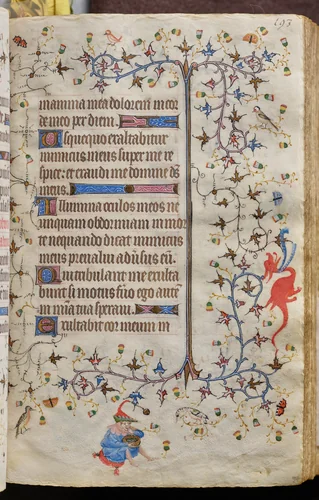 193
in anima mea dolorem in cor
de meo per diem.
Usquequo exaltabitur
inimicus meus super me re
spice: et exaudi me domine ds
meus.
Illumina oculos meos ne
unquam obdormiam in mor
te nequando dicat inimicus
meus prevalui advsus eū.
Qui tribulant me exulta
bunt si motus fuo ego autē
in mīa tua speravi.
Exultabit cor meum in